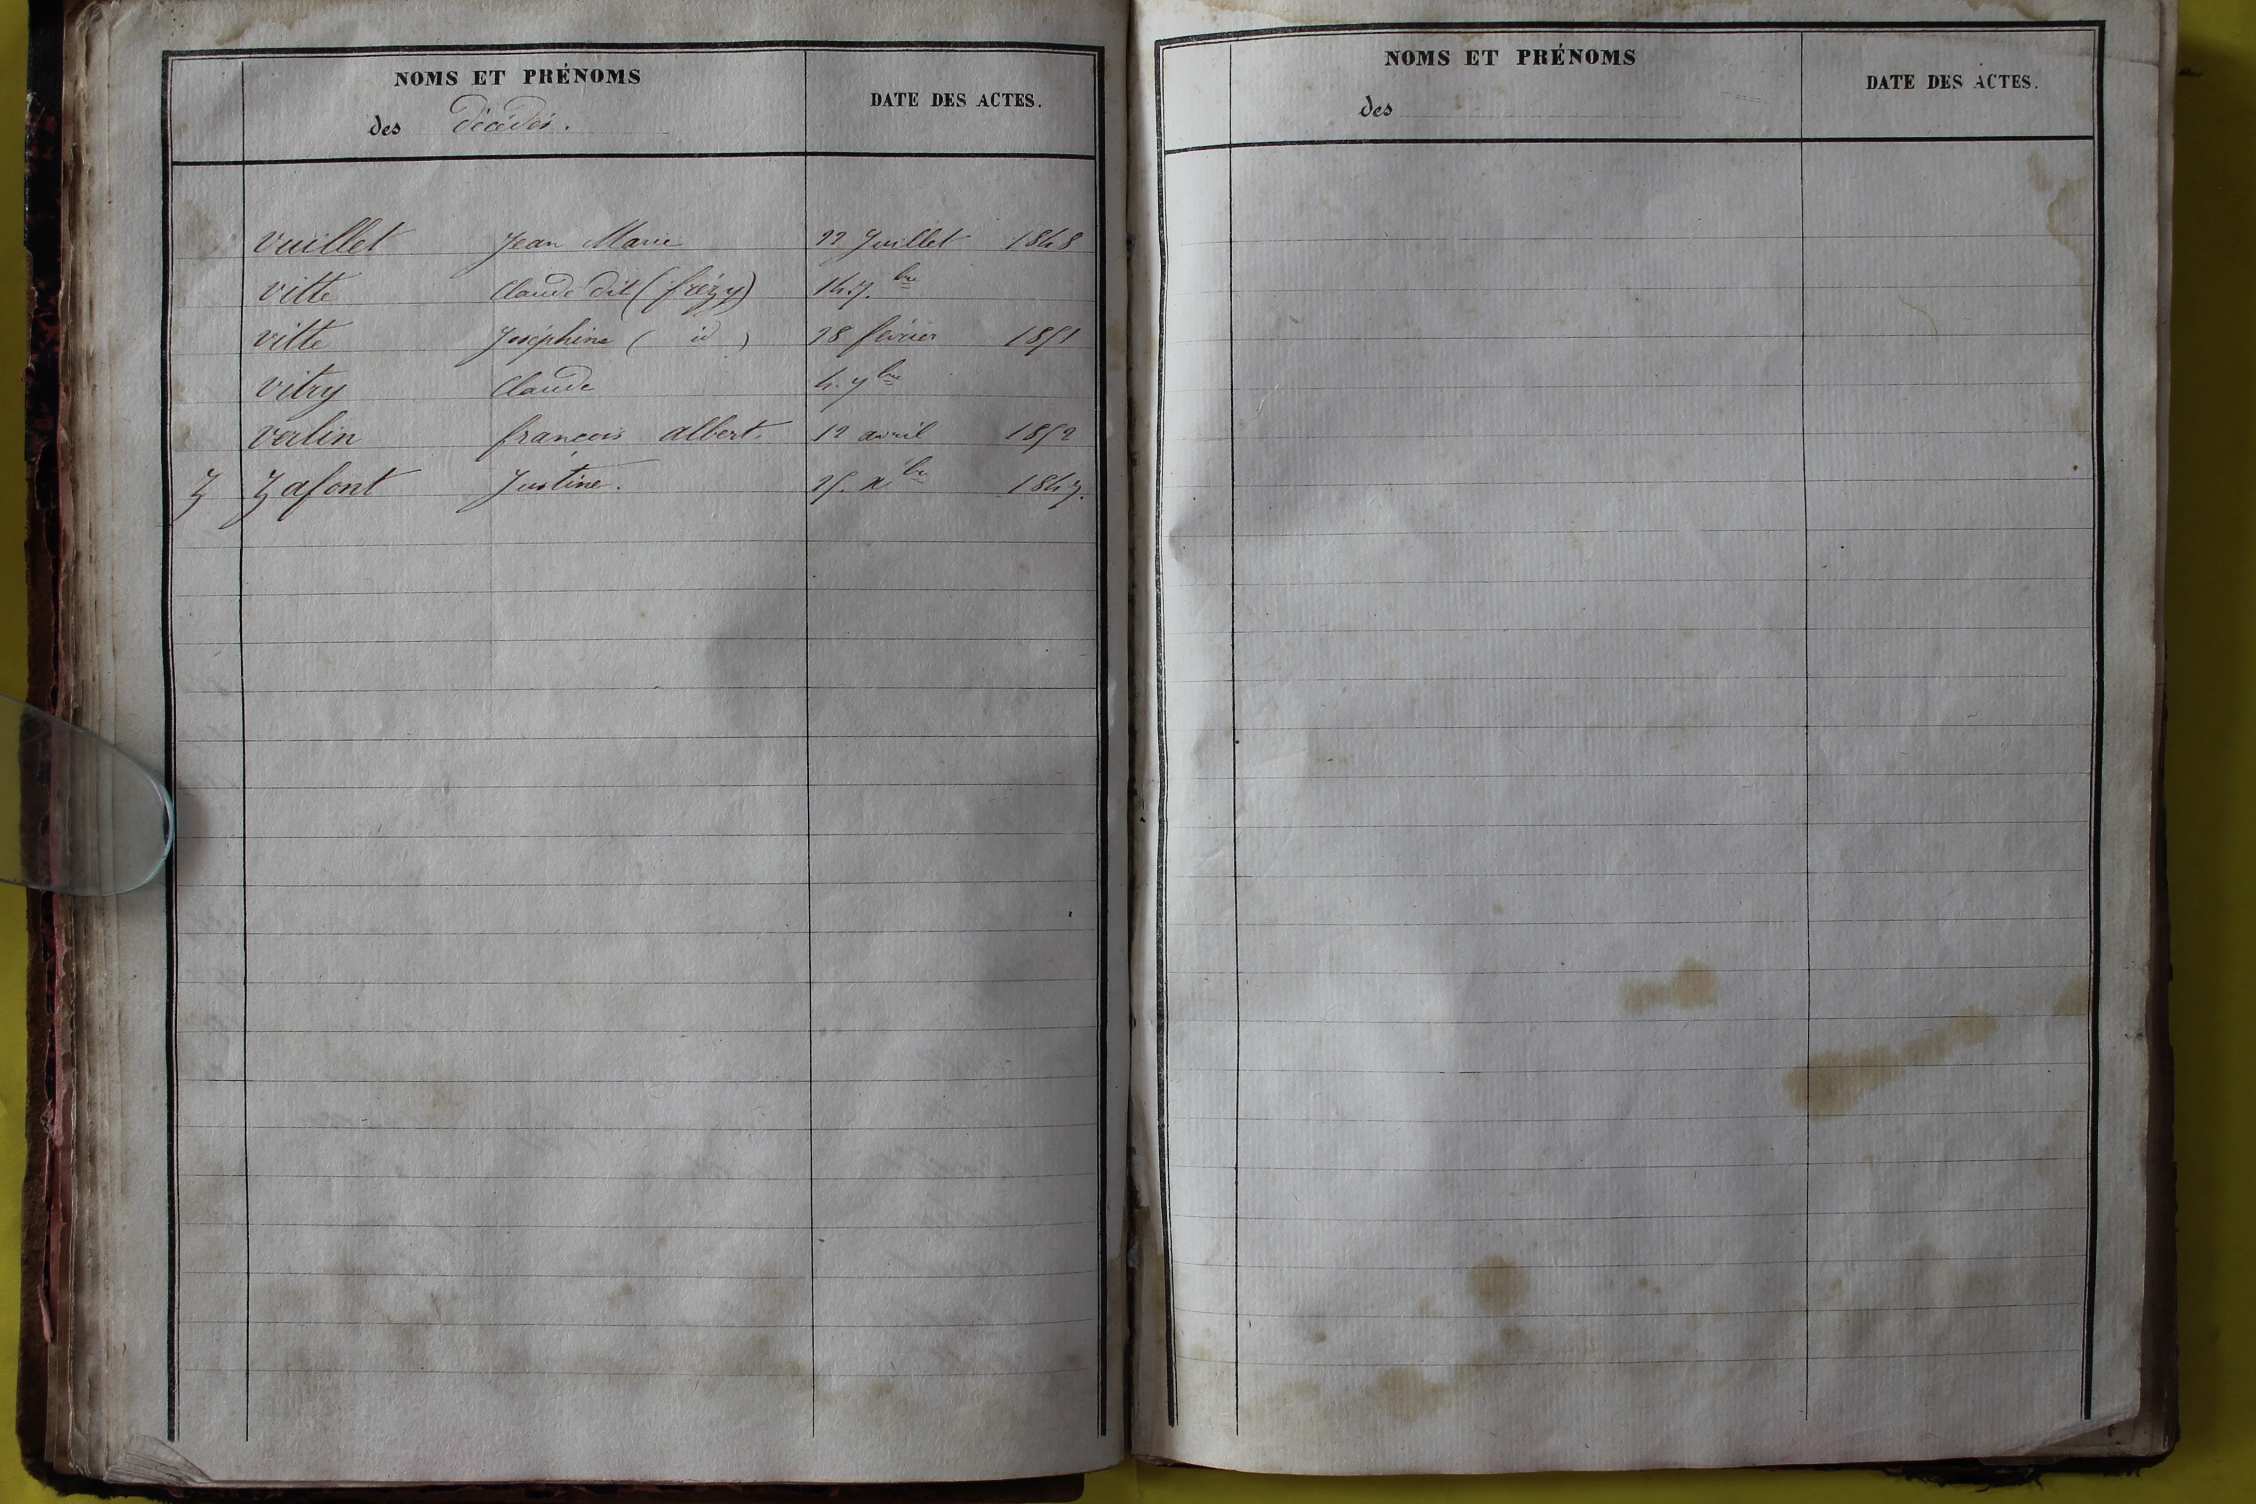 NOMS ET PRÉNOMS
des Décédés.
DATE DES ACTES.
Vuillet Jean Marie 22 Juillet 1848
Vitte Claude dit (frézy) 14 7.bre
Vitte Joséphine ( id ) 28 février 1851
Vitry Claude 4. 7bre
Verlin françois albert. 12 avril 1852
Z Zafont Justine. 25. Xbre 1847.
NOMS ET PRÉNOMS
des
DATE DES ACTES.